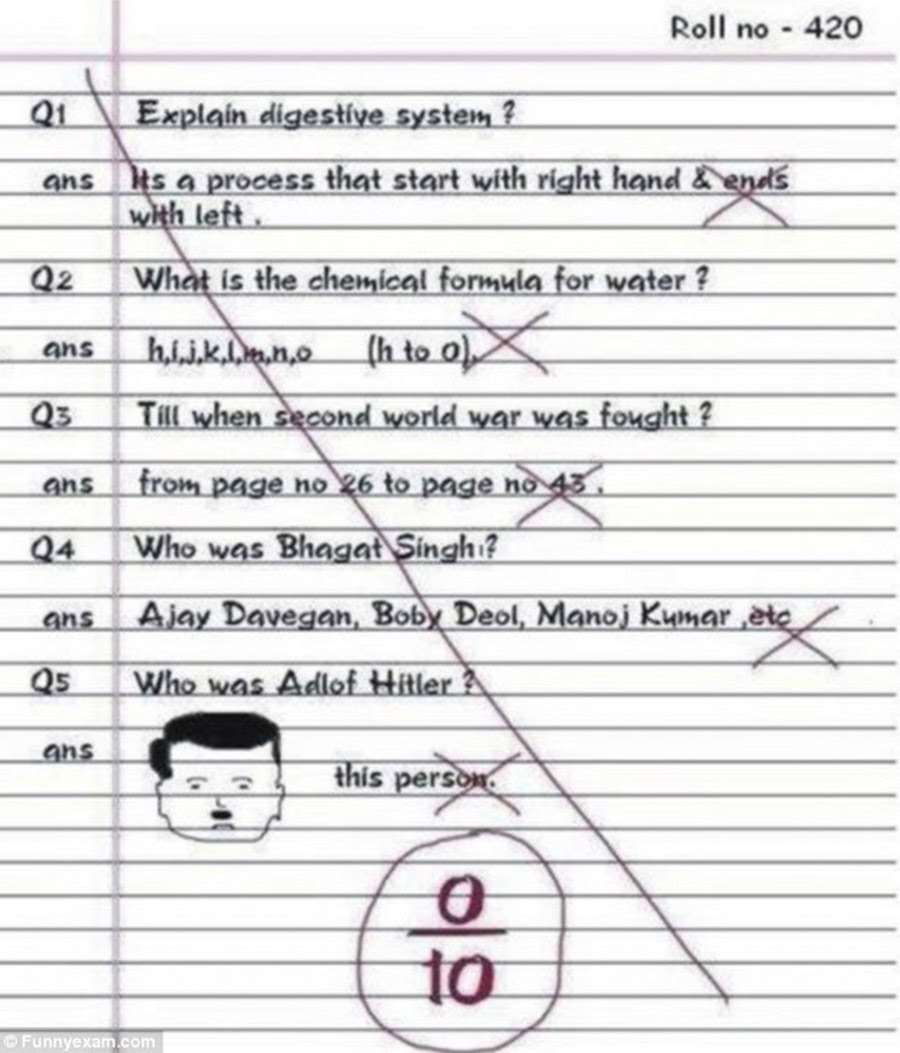 Roll no - 420
Q1 Explain digestive system ?
ans Its a process that start with right hand & ends
with left .
Q2 What is the chemical formula for water ?
ans h,i,j,k,l,m,n,o (h to o),
Q3 Till when second world war was fought ?
ans from page no 26 to page no 43 .
Q4 Who was Bhagat Singh ?
ans Ajay Davegan, Boby Deol, Manoj Kumar ,etc
Q5 Who was Adlof Hitler ?
ans this person.
0
10
© Funnyexam.com